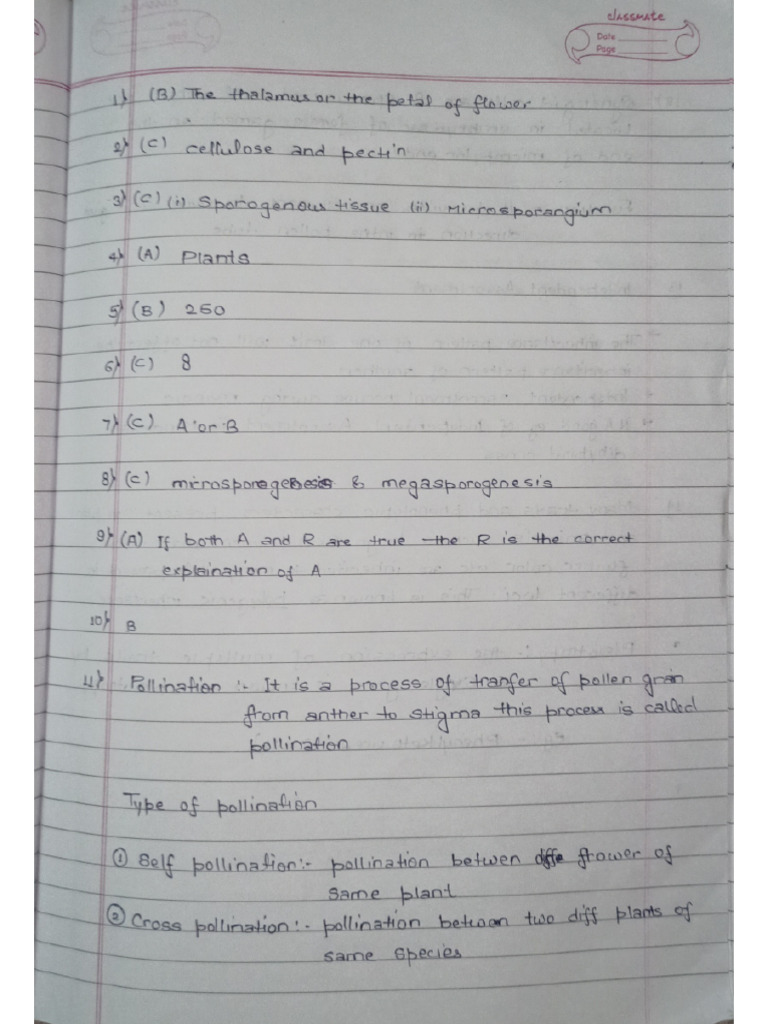 classmate
Date
Page
1) (B) The thalamus or the petal of flower
2) (C) cellulose and pectin
3) (C) (i) Sporogenous tissue (ii) Microsporangium
4) (A) Plants
5) (B) 250
6) (C) 8
7) (C) A or B
8) (C) & megasporogenesis
9) (A) If both A and R are true the R is the correct
explaination of A
10) B
11) Pollination :- It is a process of tranfer of pollen grain
from anther to stigma this process is called
pollination
Type of pollination
① Self pollination:- pollination betwen flower of
same plant
② Cross pollination:- pollination between two diff plants of
same species